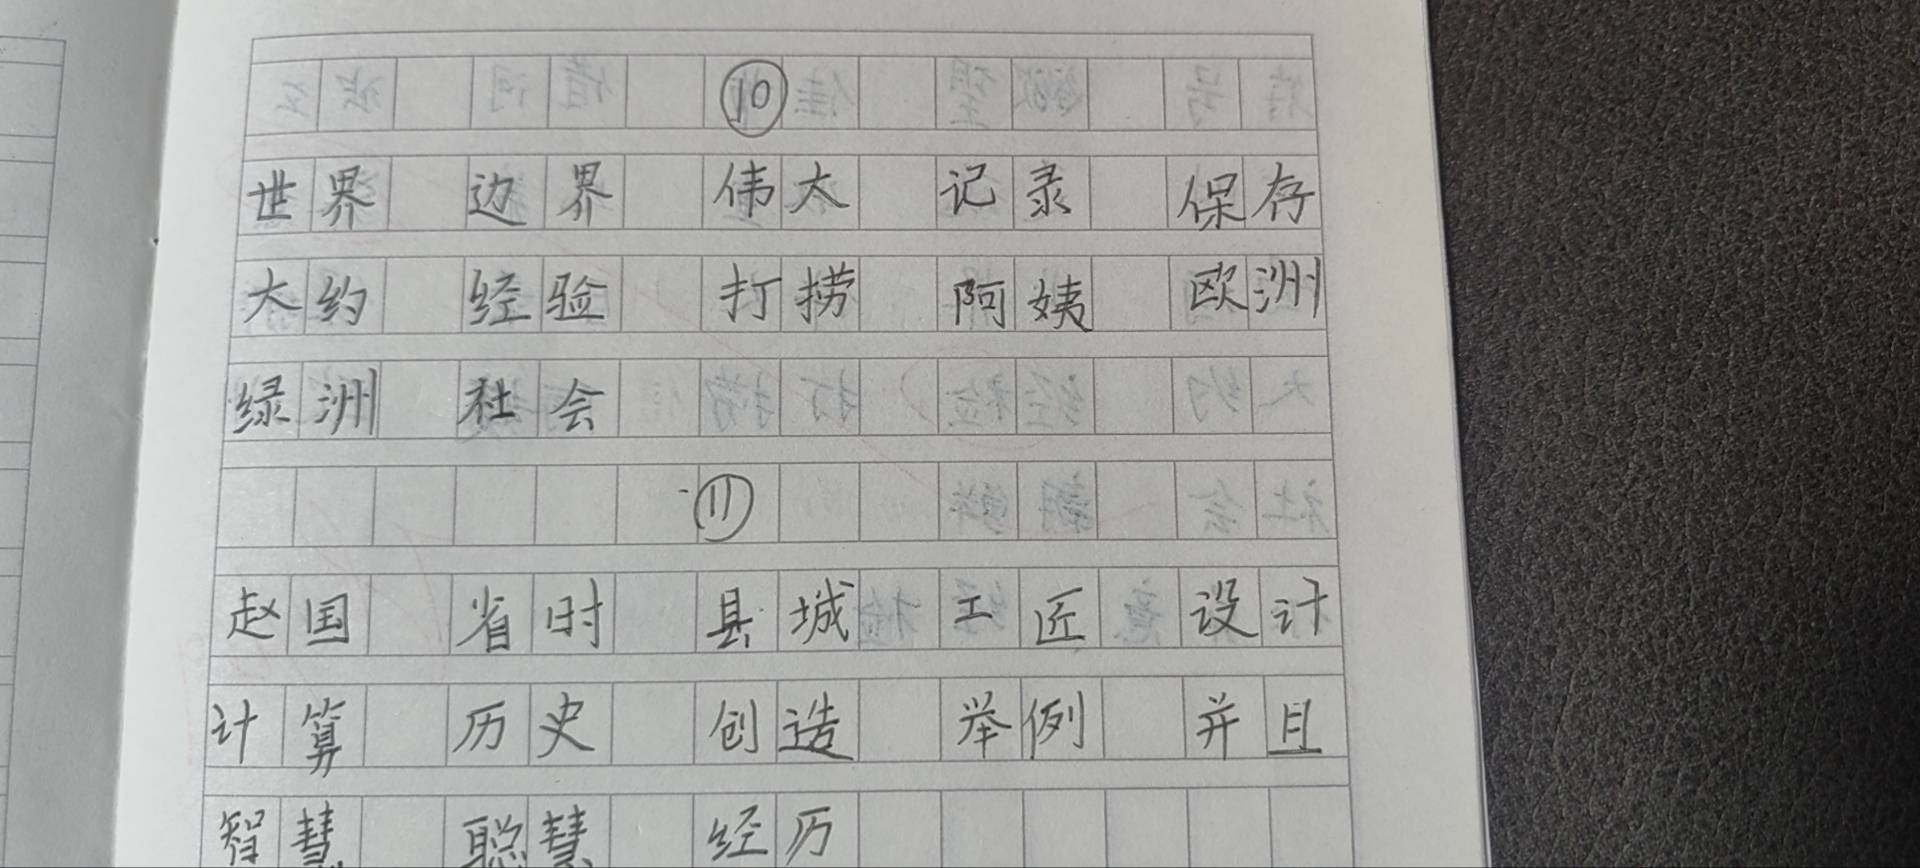 ⑩
世界 边界 伟大 记录 保存
大约 经验 打捞 阿姨 欧洲
绿洲 社会
⑪
赵国 省时 县城 工匠 设计
计算 历史 创造 举例 并且
智慧 聪慧 经历